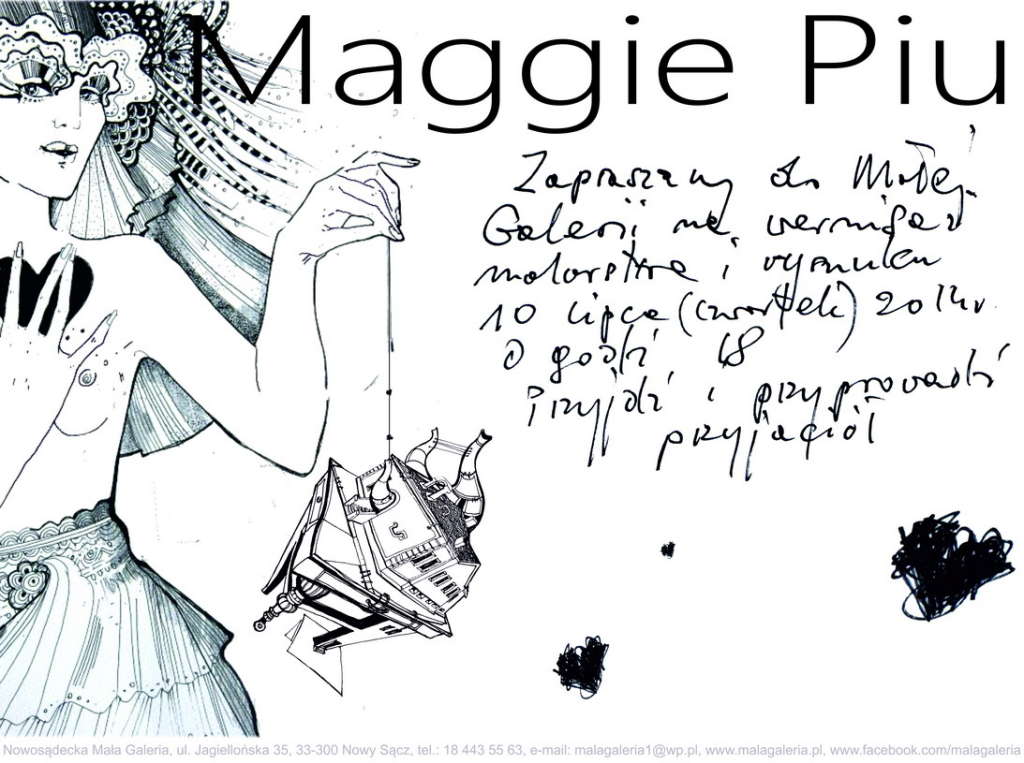 Maggie Piu
Zapraszamy do Małej
Galerii na wernisaż
malarstwa i rysunku
10 lipca (czwartek) 2014r.
o godź 18
Przyjdź i przyprowadź
przyjaciół
Nowosądecka Mała Galeria, ul. Jagiellońska 35, 33-300 Nowy Sącz, tel.: 18 443 55 63, e-mail: malagaleria1@wp.pl, www.malagaleria.pl, www.facebook.com/malagaleria